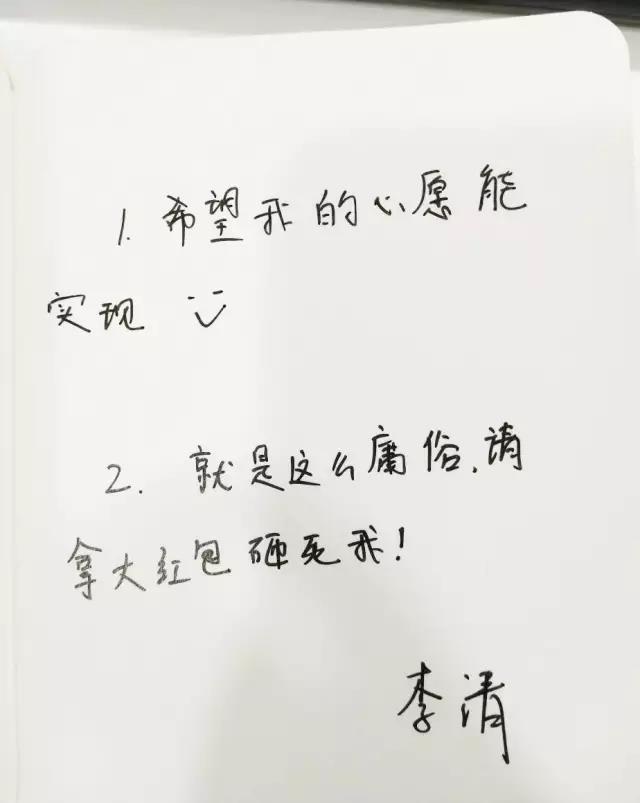 1. 希望我的心愿能
实现
2. 就是这么庸俗,请
拿大红包砸死我!
李清